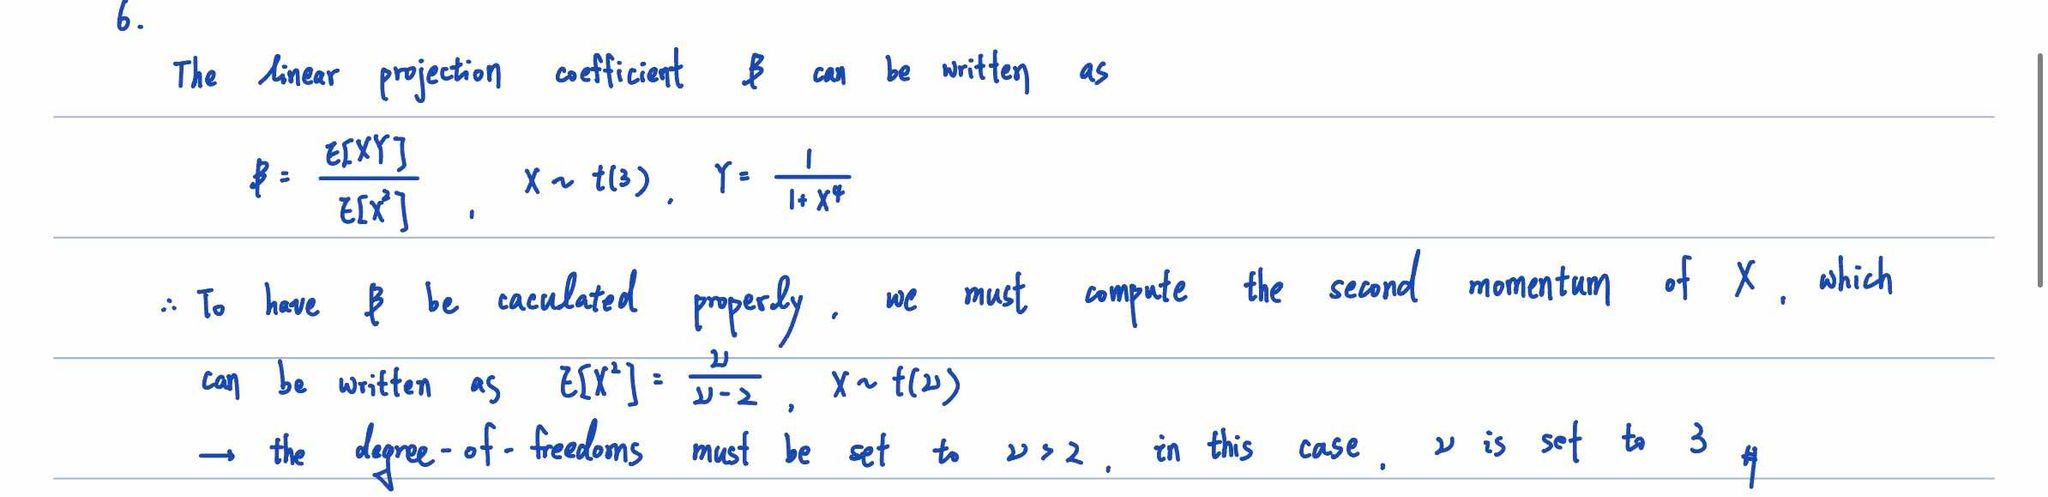 6.
The linear projection coefficient β can be written as
β = E[XY] / E[X²] , X ~ t(3), Y = 1 / 1+X⁴
∴ To have β be caculated properly, we must compute the second momentum of X, which
can be written as E[X²] = ν / ν-2 , X ~ t(ν)
→ the degree-of-freedoms must be set to ν > 2, in this case, ν is set to 3 #